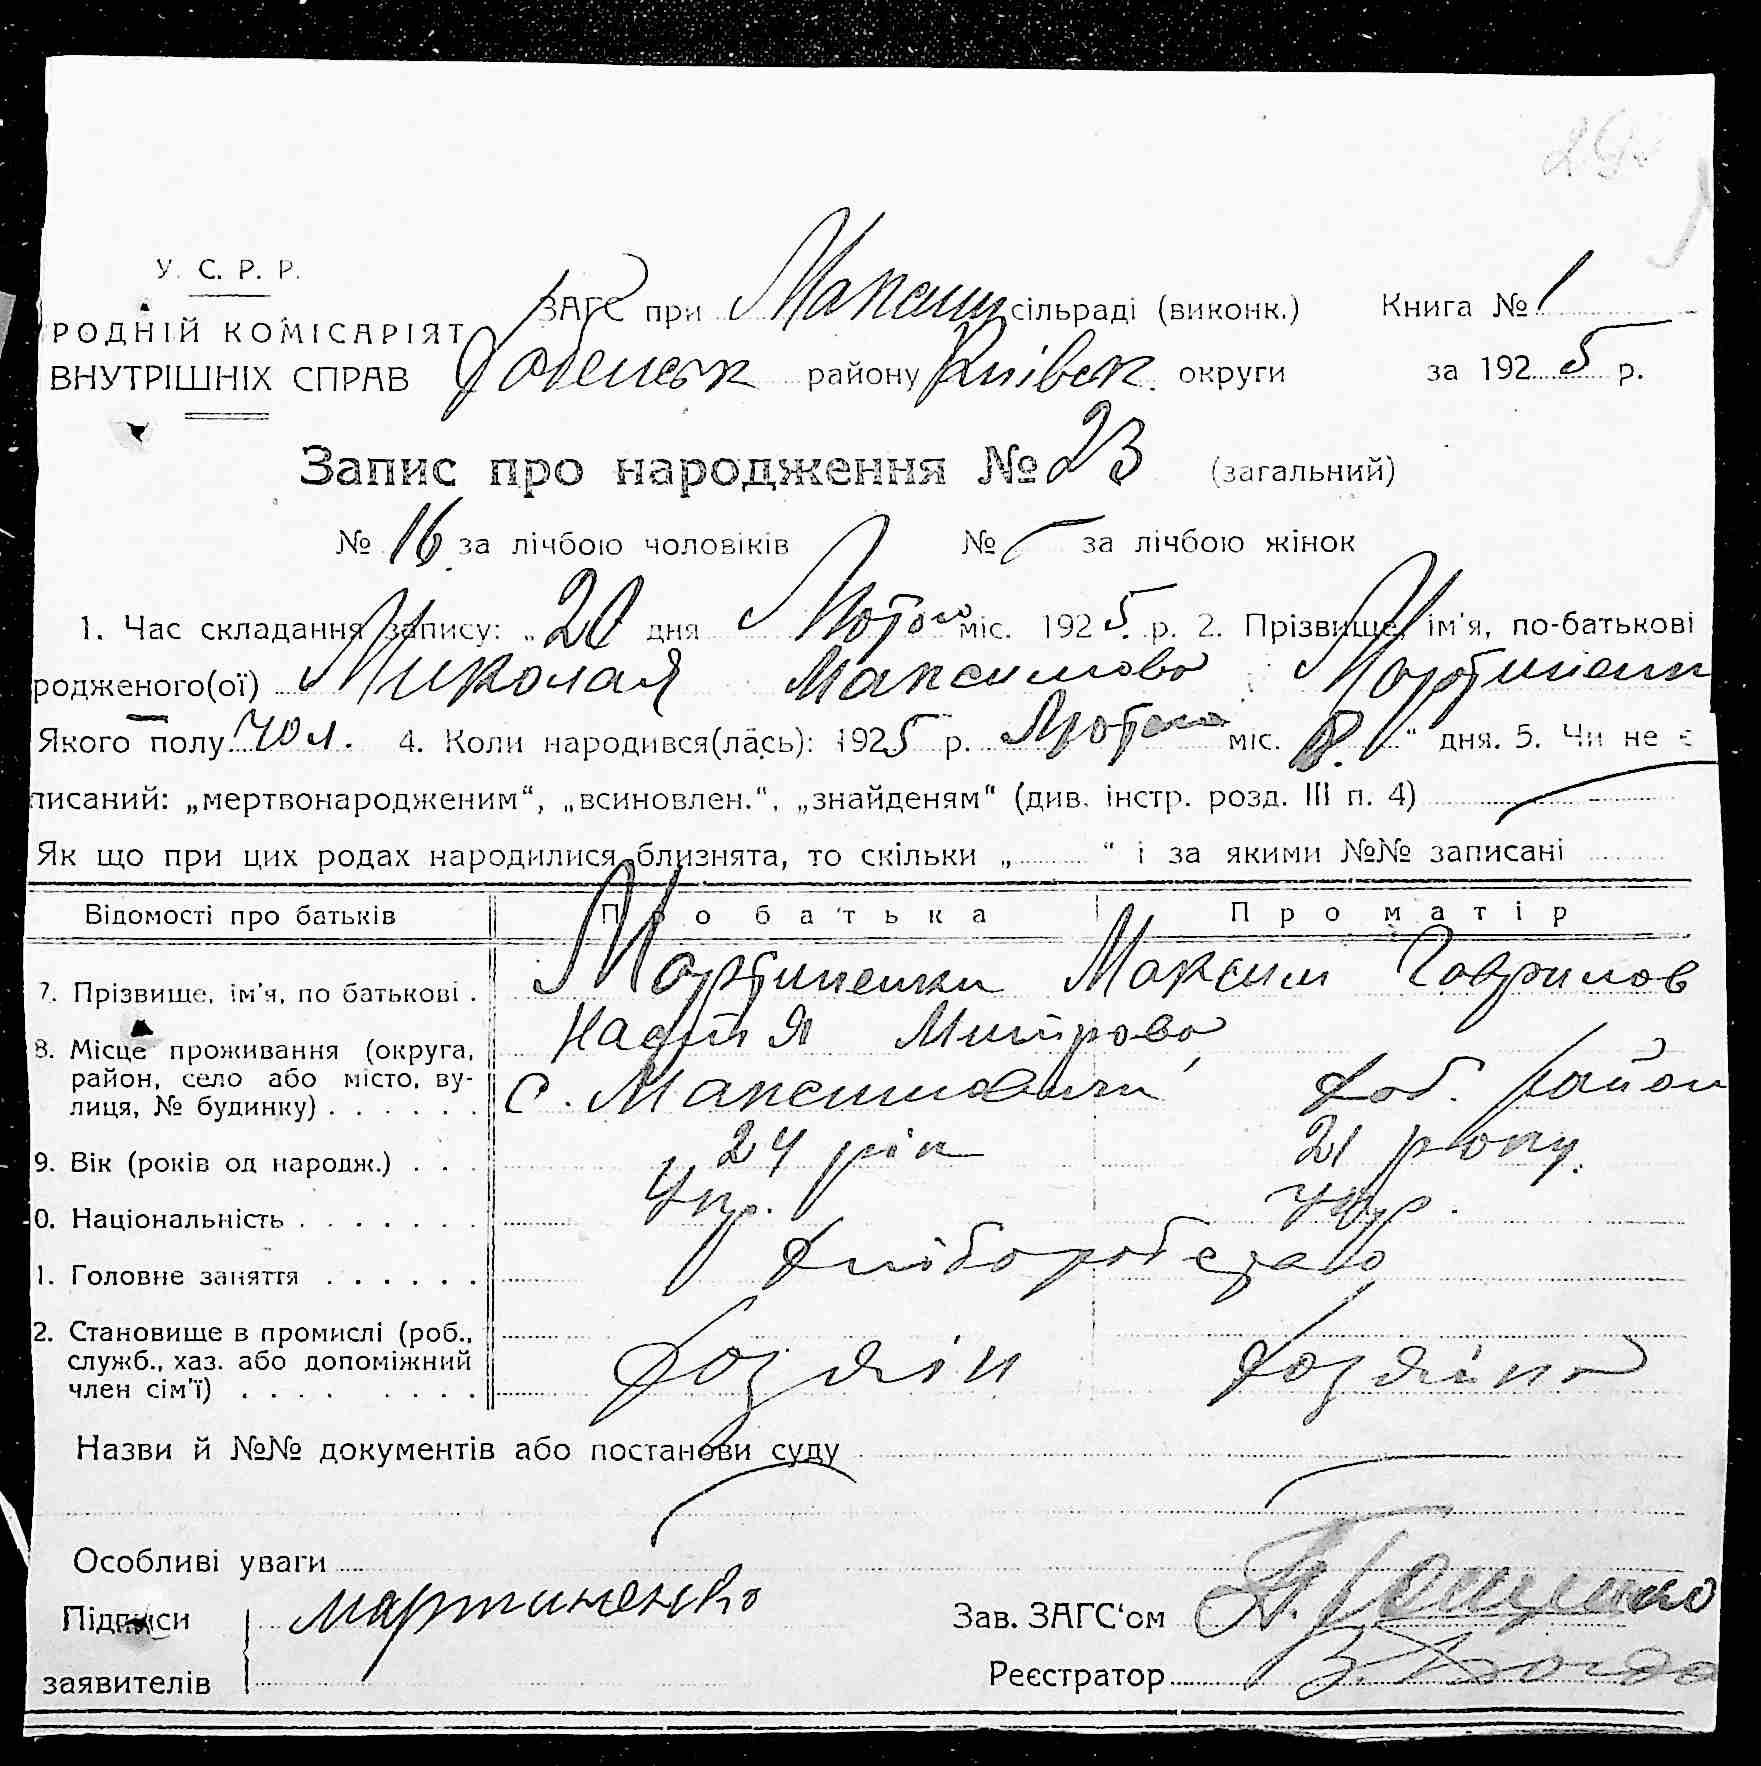 29
У. С. Р. Р.
ЗАГС при Максим сільраді (виконк.) Книга № 1
РОДНІЙ КОМІСАРІЯТ
ВНУТРІШНІХ СПРАВ району Київськ. округи за 1925 р.
Запис про народження № 23 (загальний)
№ 16 за лічбою чоловіків № за лічбою жінок
1. Час складання запису: „20 дня Лютого міс. 1925 р. 2. Прізвище, ім'я, по-батькові
родженого(ої) Миколая Максимова Мартиненк
Якого полу чол. 4. Коли народився(лась): 1925 р. Лютого міс. 8. “ дня. 5. Чи не є
писаний: „мертвонародженим“, „всиновлен.“, „знайденям“ (див. інстр. розд. III п. 4)
Як що при цих родах народилися близнята, то скільки „ “ і за якими №№ записані
Відомості про батьків Про батька Про матір
7. Прізвище, ім'я, по батькові . Мартиненки Максим Гаврилов
Настя Митрова
8. Місце проживання (округа, район, село або місто, ву-
лиця, № будинку) . . . . . . с. Максимовичи, Хаб. район
9. Вік (років од народж.) . . . 24 рік 21 року.
0. Національність . . . . . . . Укр. Укр.
1. Головне заняття . . . . . . Хліборобство
2. Становище в промислі (роб.,
служб., хаз. або допоміжний
член сім'ї) . . . . . . . . . Хозяін Хозяйка
Назви й №№ документів або постанови суду
Особливі уваги
Підписи Мартиненко Зав. ЗАГС'ом
заявителів Реєстратор